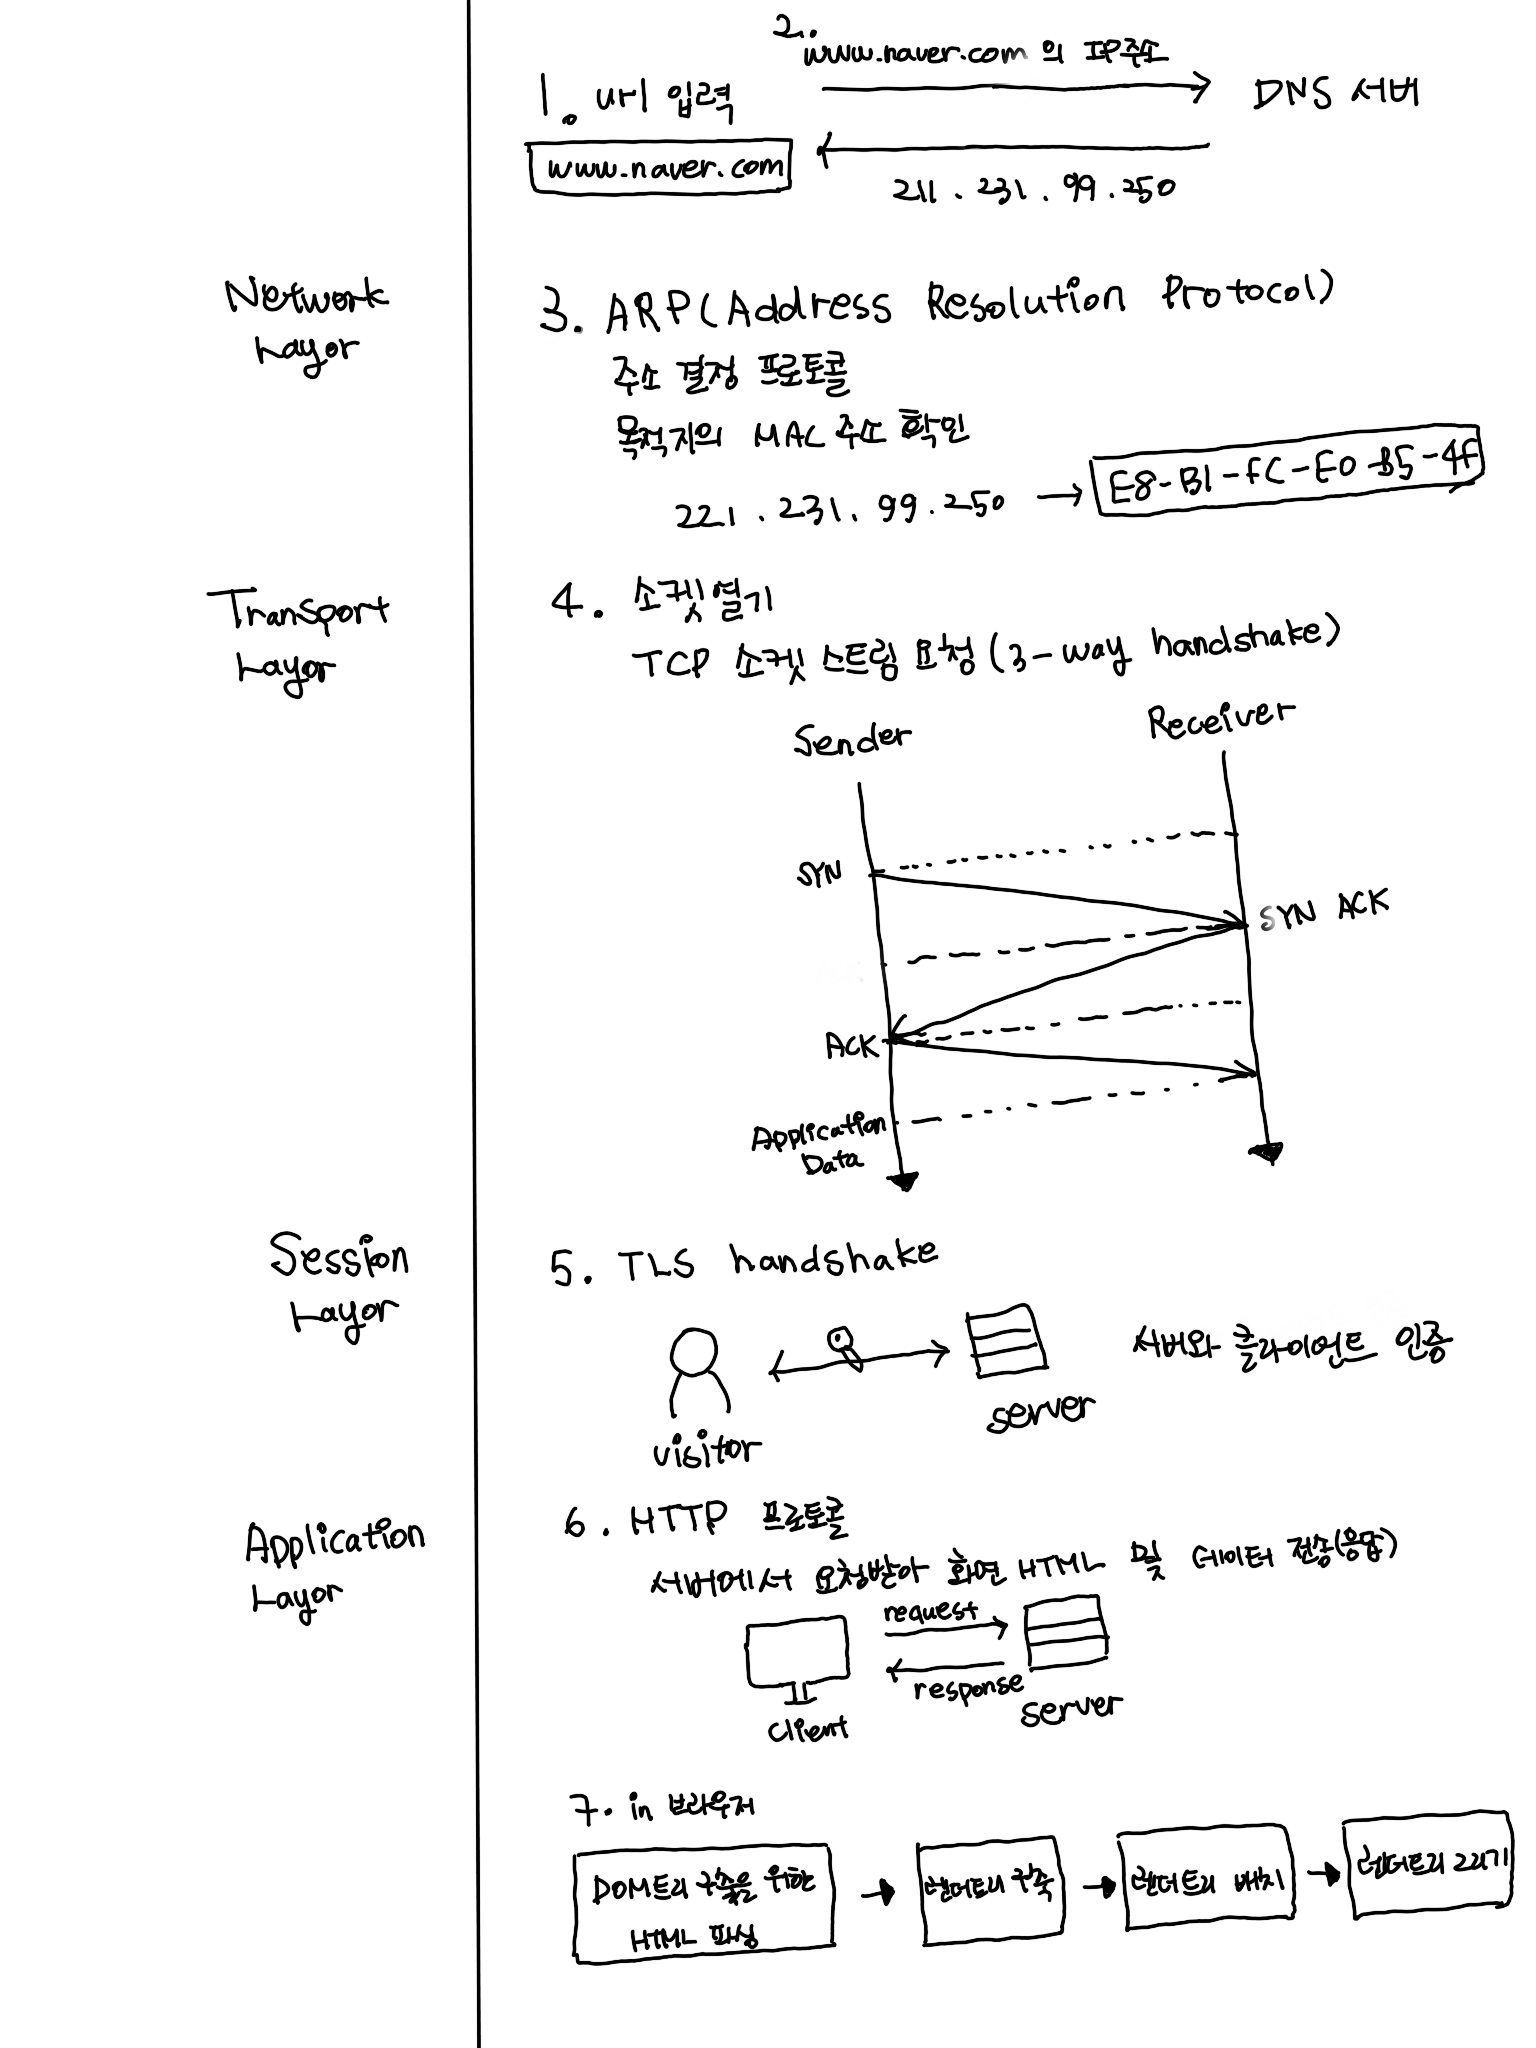 1. url 입력
www.naver.com
2.
www.naver.com 의 IP주소
DNS 서버
211.231.99.250
Network
Layor
3. ARP(Address Resolution Protocol)
주소 결정 프로토콜
목적지의 MAC 주소 확인
221.231.99.250 → E8-B1-FC-E0-B5-4F
Transport
Layor
4. 소켓열기
TCP 소켓 스트림 요청(3-way handshake)
Sender
Receiver
SYN
SYN ACK
ACK
Application
Data
Session
Layor
5. TLS handshake
visitor
server
서버와 클라이언트 인증
Application
Layor
6. HTTP 프로토콜
서버에서 요청받아 화면 HTML 및 데이터 전송(응답)
request
response
client
server
7. in 브라우저
DOM트리 구축을 위한
HTML 파싱
렌더트리 구축
렌더트리 배치
렌더트리 그리기